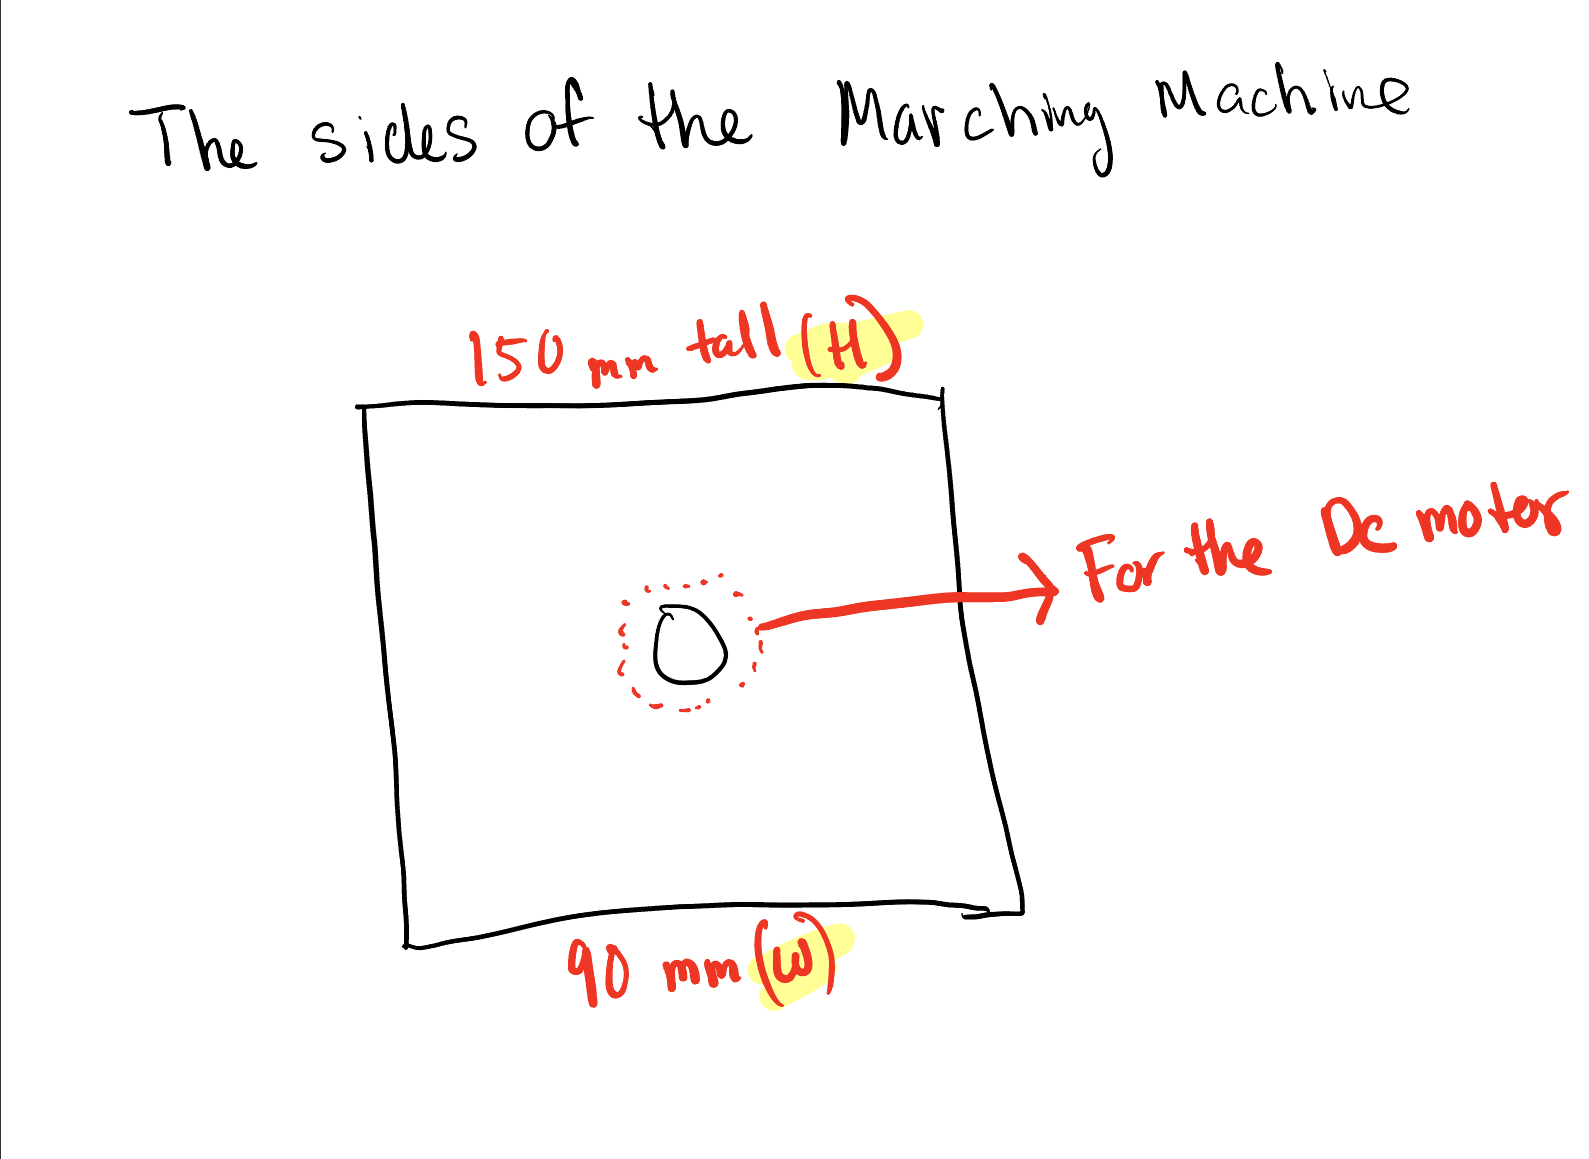 The sides of the Marching Machine
150 mm tall (H)
For the Dc motor
90 mm (W)